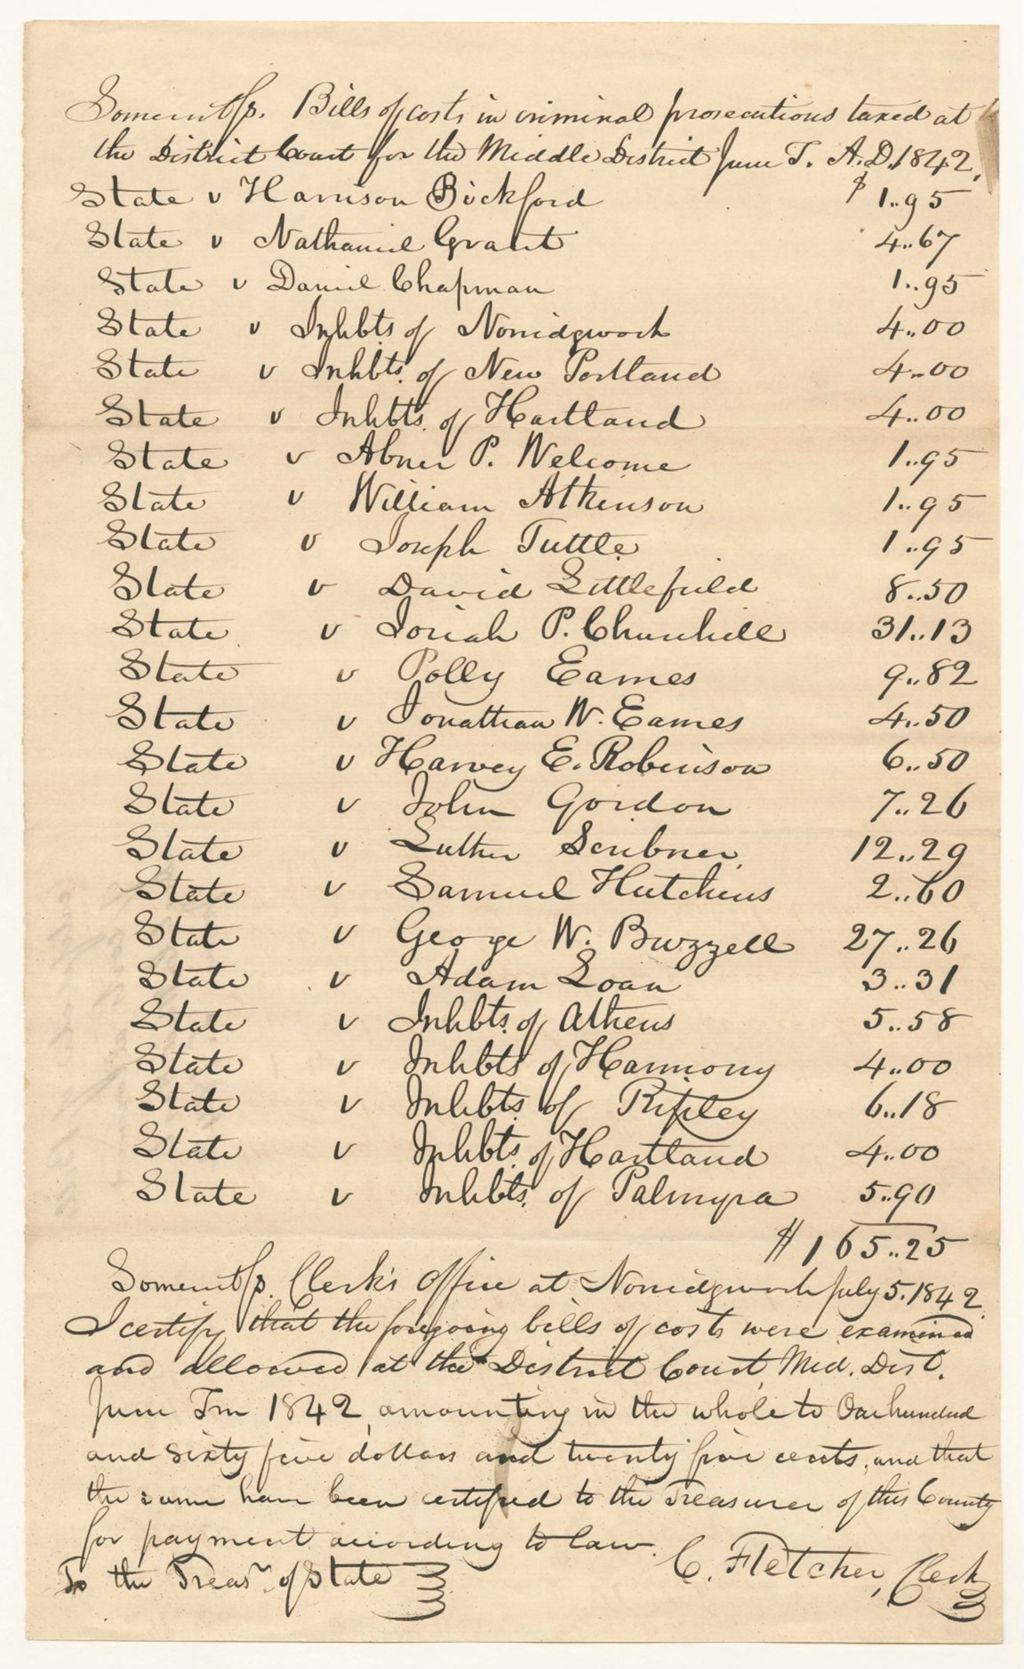 Somerset ss. Bills of costs in criminal prosecutions taxed at
the District Court for the Middle District June T. A.D. 1842.
State v Harrison Bickford $ 1..95
State v Nathaniel Grant 4..67
State v Daniel Chapman 1..95
State v Inhbts of Norridgwock 4..00
State v Inhbts. of New Portland 4..00
State v Inhbts. of Hartland 4..00
State v Abner P. Welcome 1..95
State v William Atkinson 1..95
State v Joseph Tuttle 1..95
State v David Littlefield 8..50
State v Josiah P. Churchill 31..13
State v Polly Eames 9..82
State v Jonathan W. Eames 4..50
State v Harvey E. Robinson 6..50
State v John Gordon 7..26
State v Luther Scribner 12..29
State v Samuel Hutchins 2..60
State v George W. Buzzell 27..26
State v Adam Loan 3..31
State v Inhbts. of Athens 5..58
State v Inhbts of Harmony 4..00
State v Inhbts. of Ripley 6..18
State v Inhbts. of Hartland 4..00
State v Inhbts. of Palmyra 5..90
$165..25
Somerset ss. Clerk's Office at Norridgwock July 5. 1842
I certify that the foregoing bills of costs were examined
and allowed at the District Court, Mid. Dist.
June Tm 1842, amounting in the whole to One hundred
and sixty five dollars and twenty five cents, and that
the same have been certified to the Treasurer of this County
for payment according to law.
To the Treasr. of State C. Fletcher, Clerk